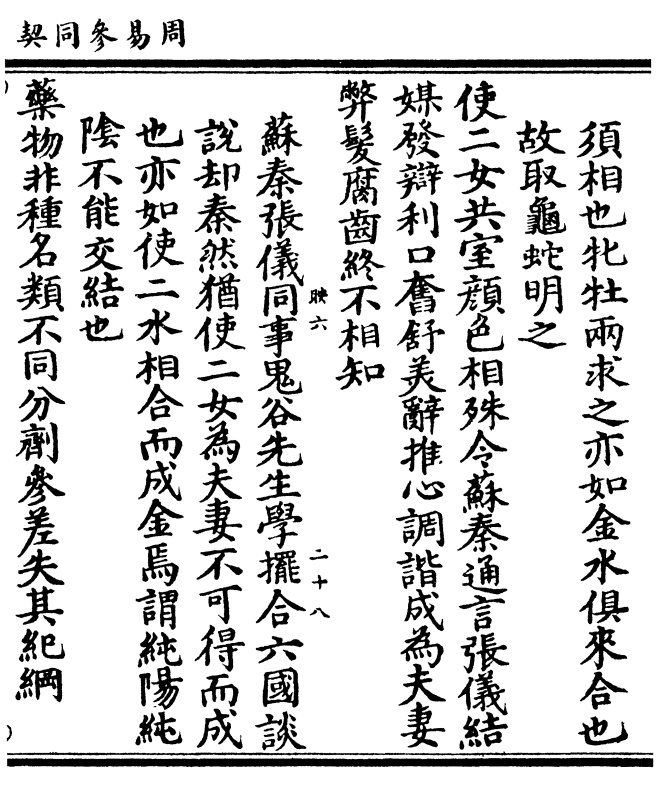 周易參同契
須相也牝牡兩求之亦如金水俱來合也
故取龜蛇明之
使二女共室顔色相殊令蘇秦通言張儀結
媒發辯利口奮舒美辭推心調諧成為夫妻
弊髮腐齒終不相知
映六
二十八
蘇秦張儀同事鬼谷先生學擺合六國談
說却秦然猶使二女為夫妻不可得而成
也亦如使二水相合而成金焉謂純陽純
陰不能交結也
藥物非種名類不同分劑參差失其紀綱